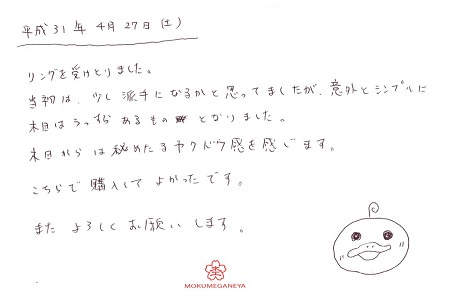 平成31年 4月27日(土)
リングを受けとりました。
当初は、少し派手になるかと思ってましたが、意外とシンプルに
木目はうっすらあるものとなりました。
木目からは秘めたるヤクドウ感を感じます。
こちらで購入して よかったです。
また よろしく お願いします。
MOKUMEGANEYA